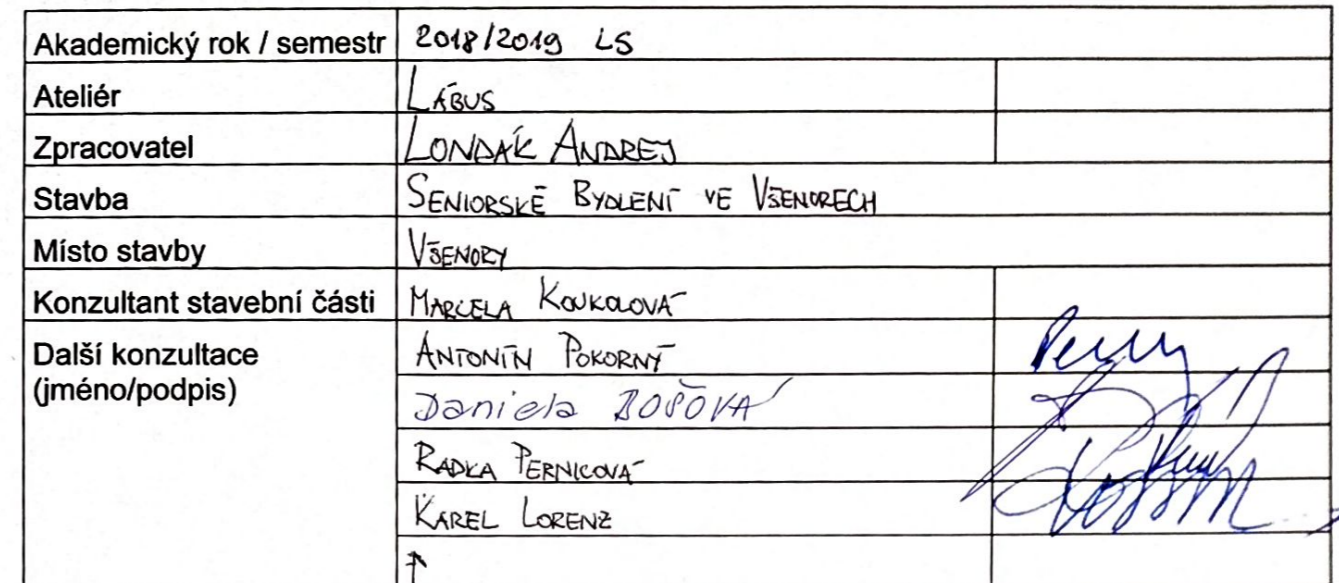 Akademický rok / semestr 2018/2019 LS
Ateliér LÁBUS
Zpracovatel LONDÁK ANDREJ
Stavba SENIORSKÉ BYDLENÍ VE VŠENORECH
Místo stavby VŠENORY
Konzultant stavební části MARCELA KOUKOLOVÁ
Další konzultace ANTONÍN POKORNÝ
(jméno/podpis) Daniela BOŠOVÁ
RADKA PERNICOVÁ
KAREL LORENZ